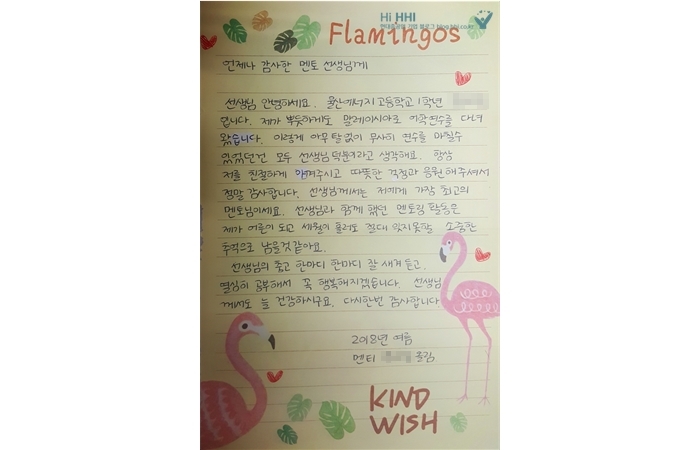 Hi HHI
현대중공업 기업 블로그 blog.hhi.co.kr
Flamingos
언제나 감사한 멘토 선생님께
선생님 안녕하세요. 울산에너지 고등학교 1학년
입니다. 제가 뿌듯하게도 말레이시아로 어학연수를 다녀
왔습니다. 이렇게 아무 탈 없이 무사히 연수를 마칠수
있었던건 모두 선생님 덕분이라고 생각해요. 항상
저를 친절하게 아껴주시고 따뜻한 걱정과 응원 해주셔서
정말 감사합니다. 선생님께서는 저에게 가장 최고의
멘토님이세요. 선생님과 함께 했던 멘토링 활동은
제가 어른이 되고 세월이 흘러도 절대 잊지못할 소중한
추억으로 남을것 같아요.
선생님의 좋고 한마디 한마디 잘 새겨 듣고,
열심히 공부해서 꼭 행복해지겠습니다. 선생님
께서도 늘 건강하시구요, 다시한번 감사합니다
2018년 여름
멘티 올림
KIND
WISH